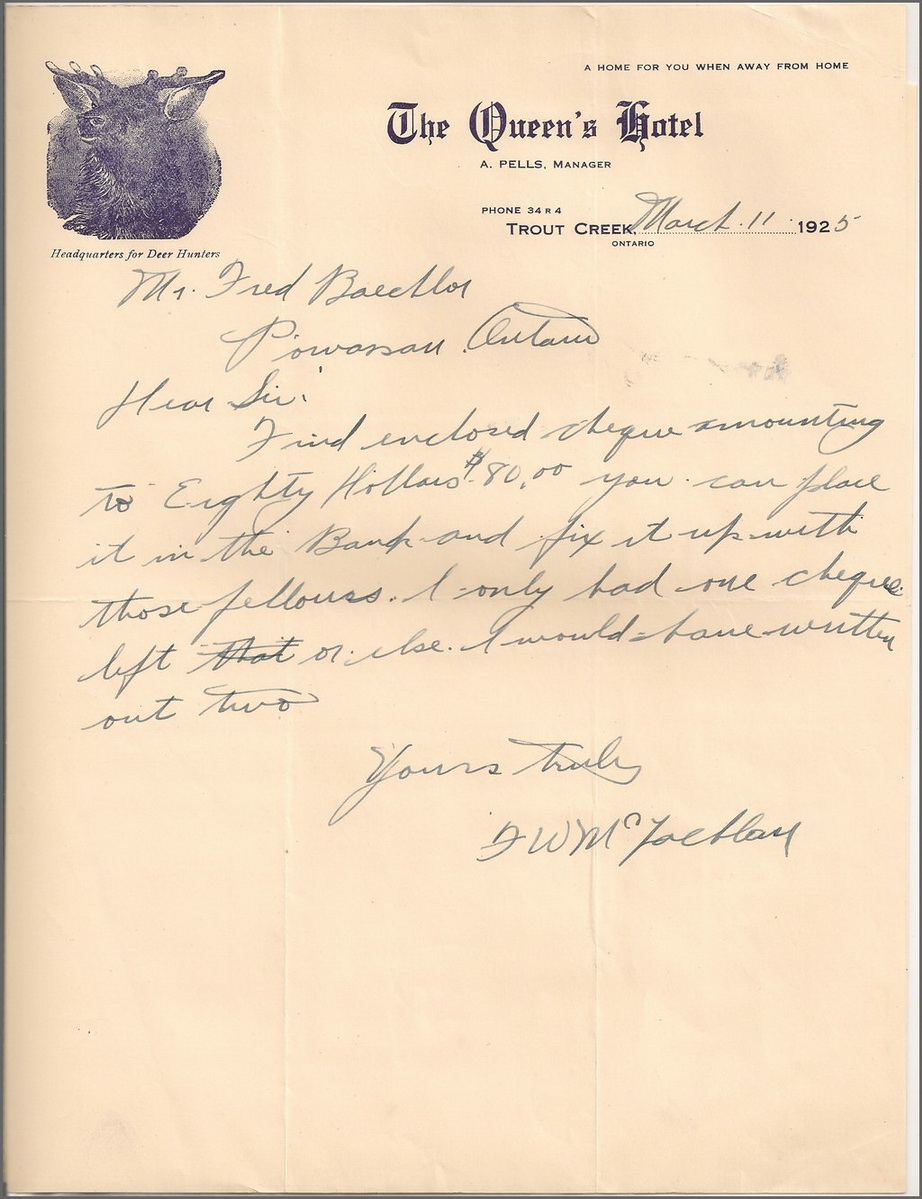 A HOME FOR YOU WHEN AWAY FROM HOME
The Queen's Hotel
A. PELLS, MANAGER
Headquarters for Deer Hunters
PHONE 34 R 4
TROUT CREEK, March 11 1925
ONTARIO
Mr. Fred
Powassan Ontario
Dear Sir:
Find enclosed cheque amounting
to Eighty Dollars $80.00 you can place
it in the Bank and fix it up with
those fellows. I only had one cheque
left that or else I would have written
out two
Yours truly
F W